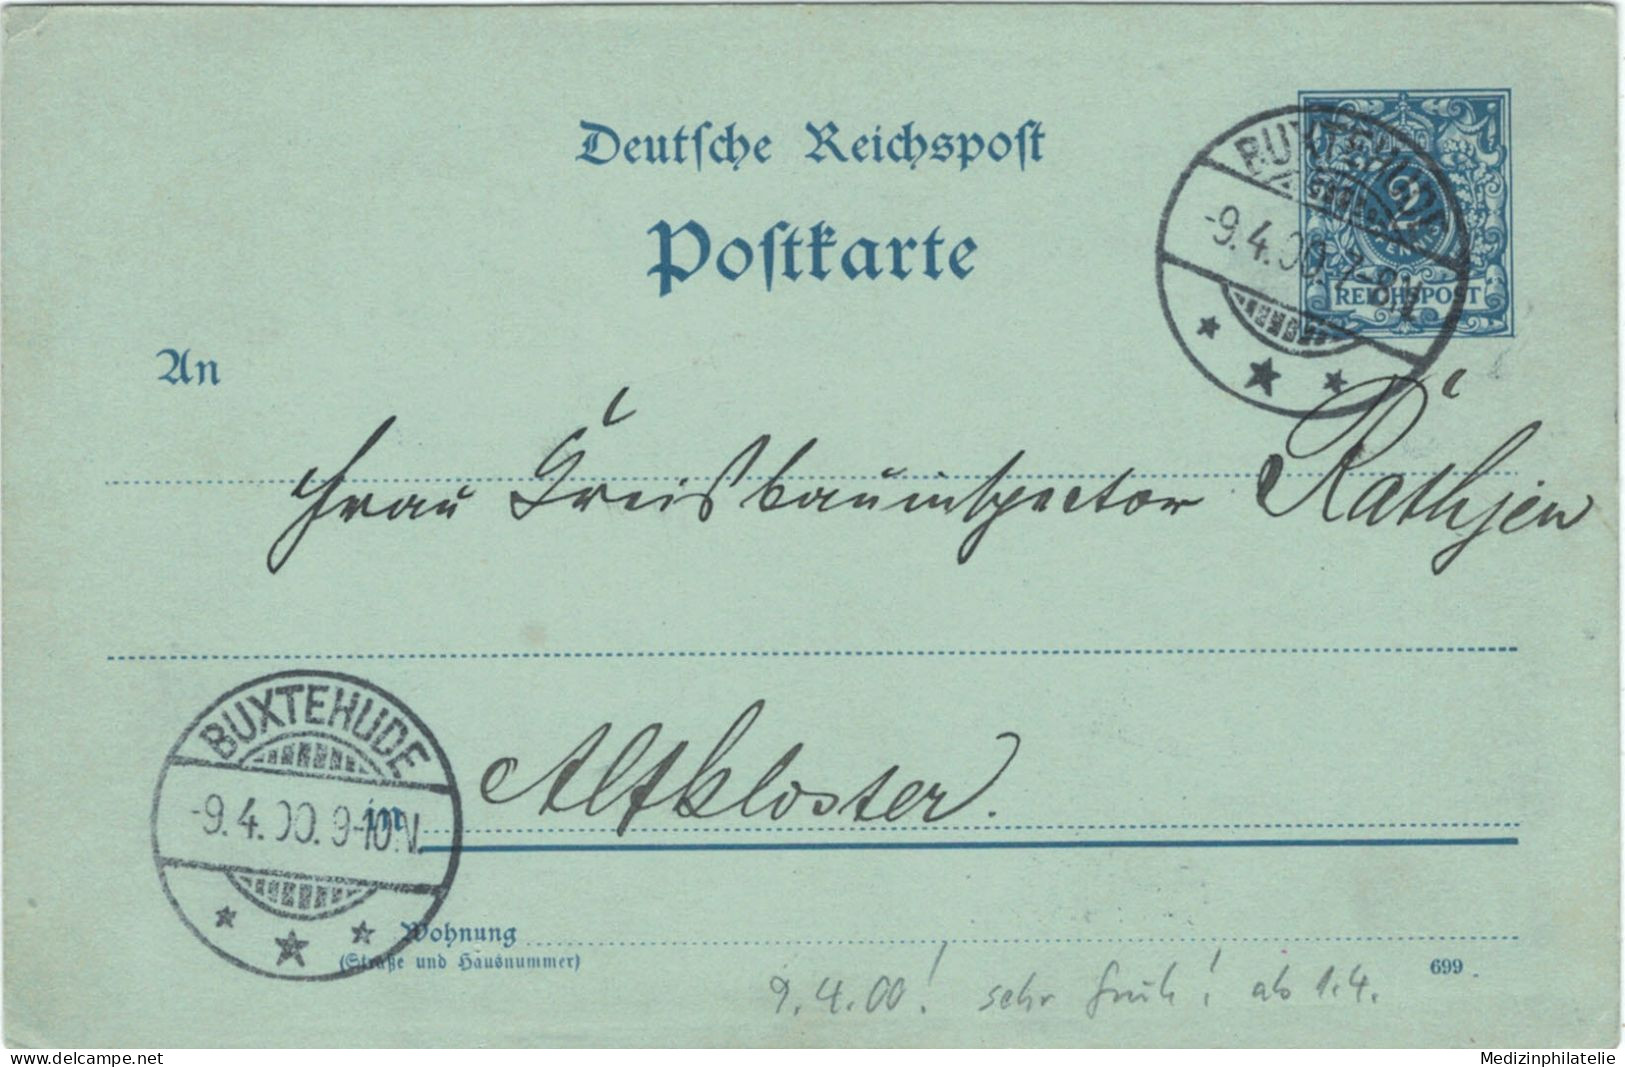 Deutsche Reichspost
Postkarte
BUXTEHUDE
-9.4.00. 7-8N.
2
REICHSPOST
An
Frau Kreisbauinspector Rathjen
BUXTEHUDE
-9.4.00. 9-10N.
in Altkloster.
Wohnung
(Straße und Hausnummer)
699
9.4.00! sehr früh! ab 1.4.
delcampe.net
Medizinphilatelie